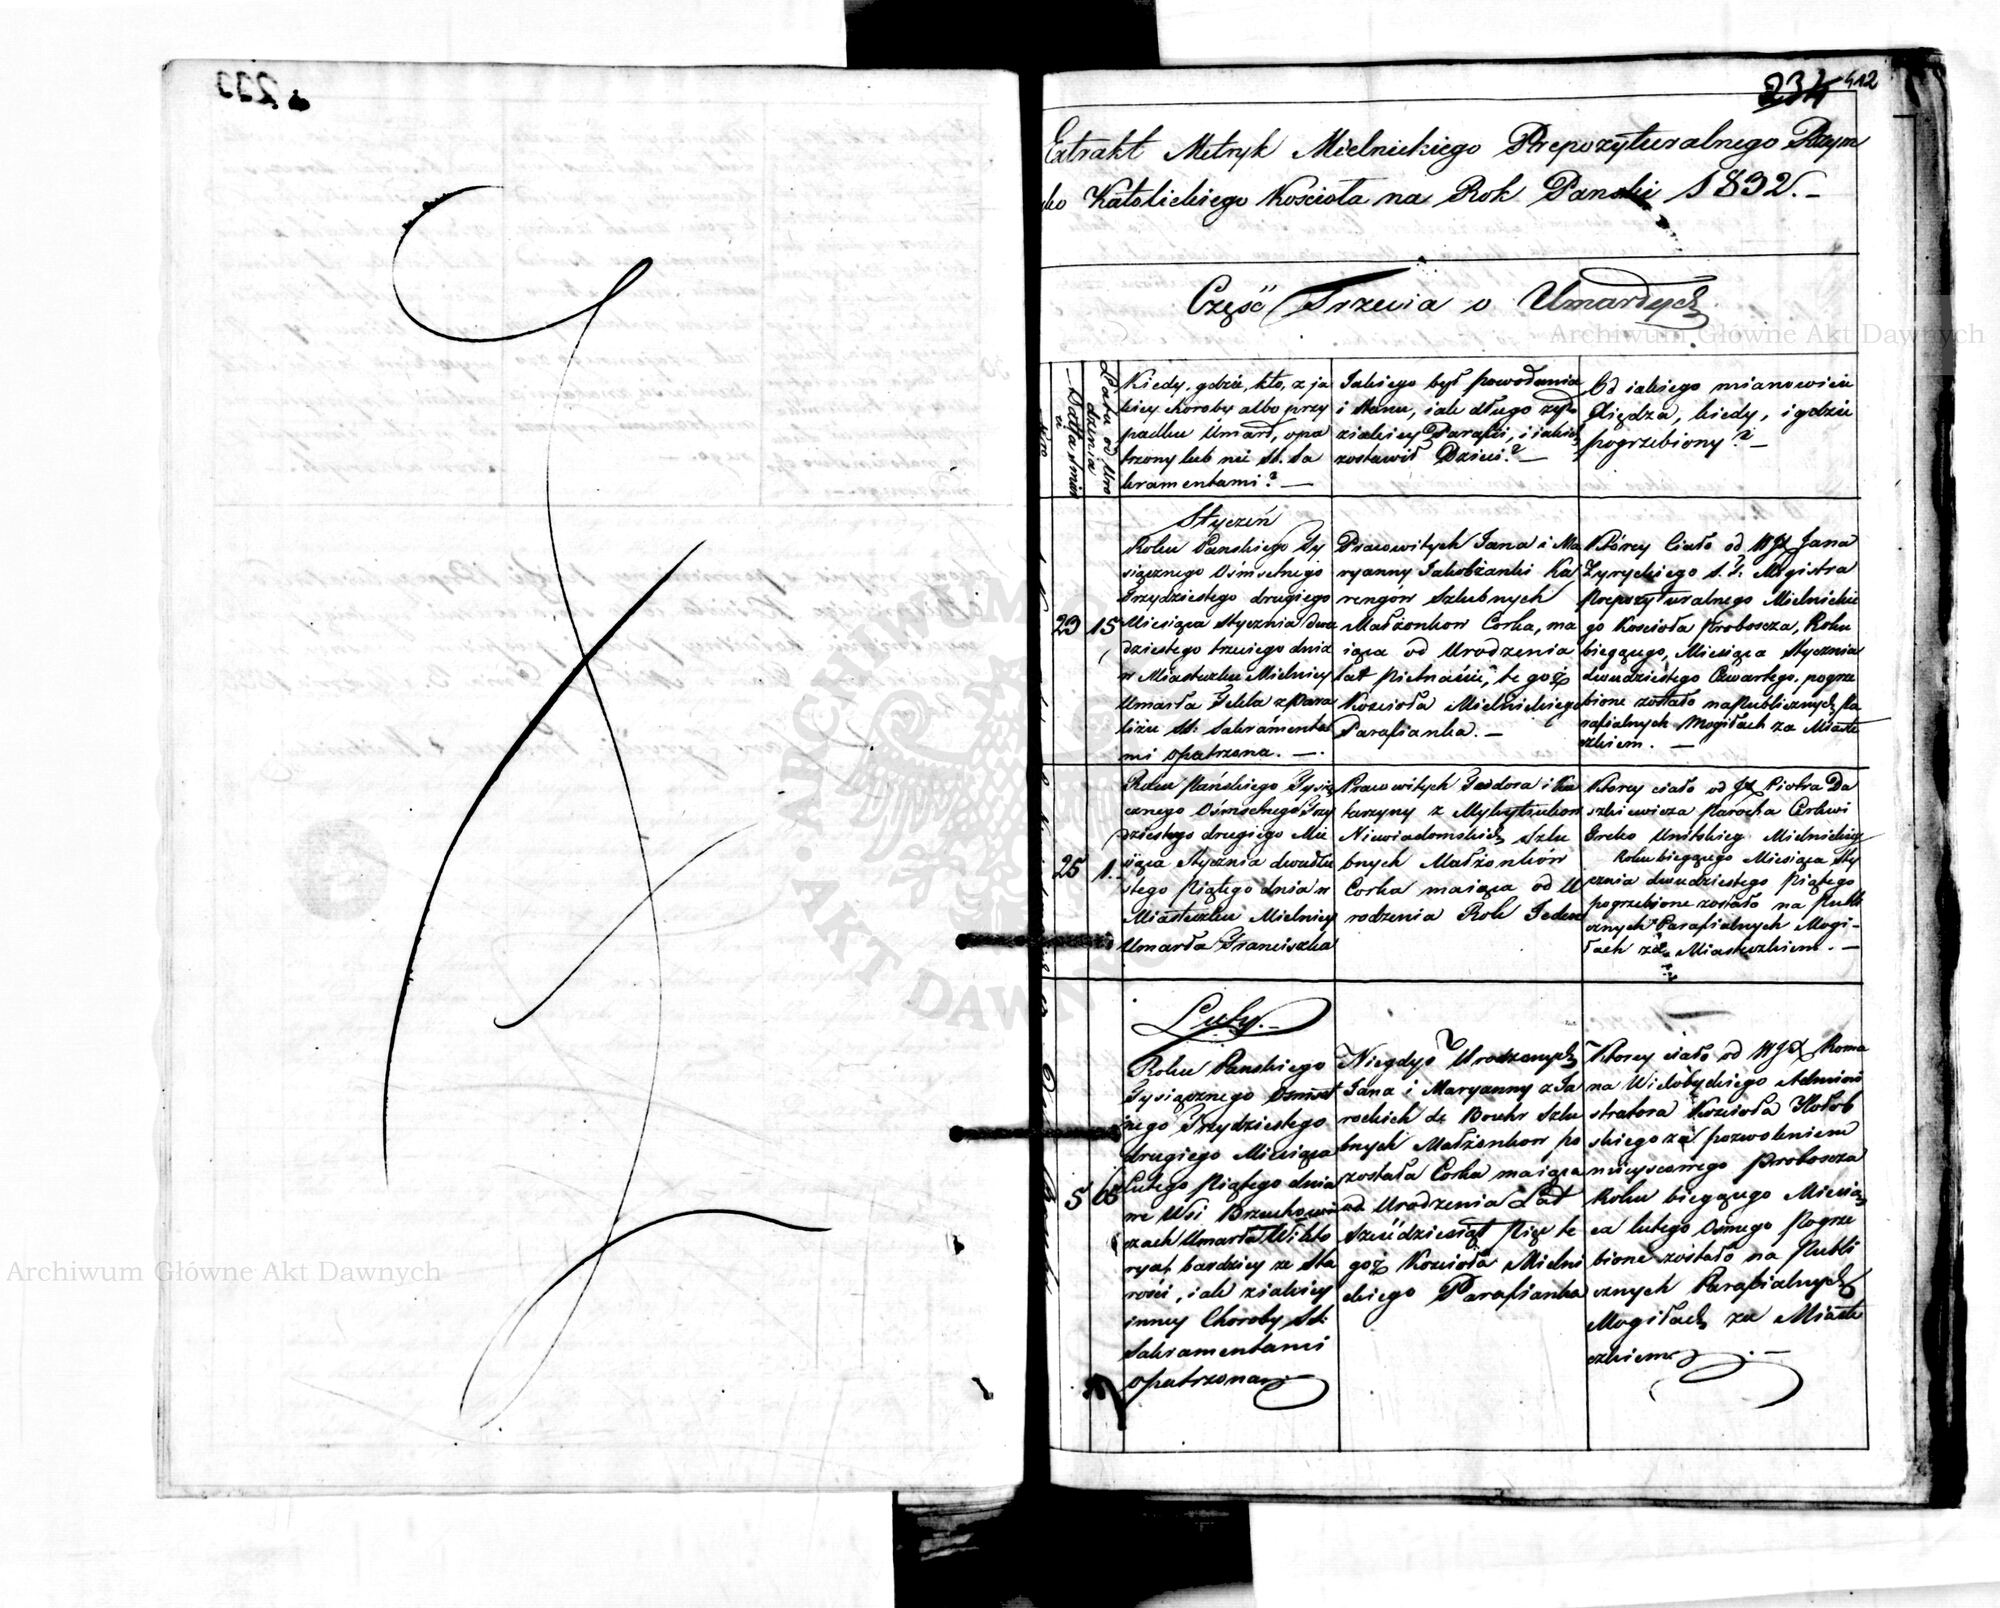 234 412
Extrakt Metryk Mielnickiego Prepozyturalnego Rzym
sko Katolickiego Kościoła na Rok Pański 1832. –
Część Trzecia o Umarłych
Archiwum Główne Akt Dawnych
Data śmier
Lata od Uro
dzenia
Kiedy, gdzie, kto, z ja
kiey choroby albo przy
padku Umarł, opa
trzony lub nie St. Sa
kramentami? —
Jakiego był powołania
i stanu, iak długo żył,
z iakiey Parafii, i iakie
zostawił Dzieci? –
Od iakiego mianowicie
Xiędza, kiedy, i gdzie
pogrzebiony? –
Styczeń
23
15
Roku Panskiego Ty
siącznego Ośmsetnego
Trzydziestego drugiego
Miesiąca Stycznia dwu
dziestego trzeciego dnia
w Miasteczku Mielnicy
Umarła Tekla z Para
liżu St: Sakramenta
mi opatrzona. —.
Pracowitych Jana i Ma
ryanny Jakobżanki Ka
rengow Szlubnych
Małżonkow Corka, ma
iąca od Urodzenia
lat Pietnaście, te goż
Kościoła Mielnickiego
Parafianka. –
Którey Ciało od WJX Jana
Zyryckiego S. T. Magistra
Prepozyturalnego Mielnickie
go Kościoła Proboszcza, Roku
biegącego, Miesiąca Stycznia
dwudziestego Czwartego, pogrze
bione zostało na Publicznych Pa
rafialnych Mogiłach za Miaste
czkiem. —
25
1.
Roku Pańskiego Tysią
cznego Ośmsetnego Trzy
dziestego drugiego Mie
siąca Stycznia dwudzie
stego Piątego dnia w
Miasteczku Mielnicy
Umarła Franciszka
Pracowitych Teodora i Ka
tarzyny z
Niewiadomskich Szlu
bnych Małżonków
Corka maiąca od U
rodzenia Rok Jeden
Którey ciało od JX Piotra Da
szkiewicza Parocha Cerkwi
Greko Unitskiey Mielnickiey
Roku biegącego Miesiąca Sty
cznia dwudziestego Piątego
pogrzebione zostało na Publi
cznych Parafialnych Mogi-
łach za Miasteczkiem. –
Luty. –
5
65
Roku Panskiego
Tysiącznego Osmset
nego Trzydziestego
drugiego Miesiąca
Lutego Piątego dnia
we Wsi Brzuchowi
czach Umarła Wikto
rya, bardziey ze Sta
rości, iak z iakiey
inney Choroby St:
Sakramentami
opatrzona
Niegdyś Urodzonych
Jana i Maryanny z Ja
rockich de Szlu
bnych Małżonkow po
została Corka maiąca
od Urodzenia Lat
Sześćdziesiąt Pięć te
goż Kościoła Mielni
ckiego Parafianka
Którey ciało od WJX Roma
na Administratora Kościoła Hołob
skiego za pozwoleniem
mieyscowego Proboszcza
Roku biegącego Miesią
ca lutego Osmego Pogrze
bione zostało na Publi
cznych Parafialnych
Mogiłach za Miaste
czkiem. –
Archiwum Główne Akt Dawnych
ARCHIWUM GŁÓWNE AKT DAWNYCH